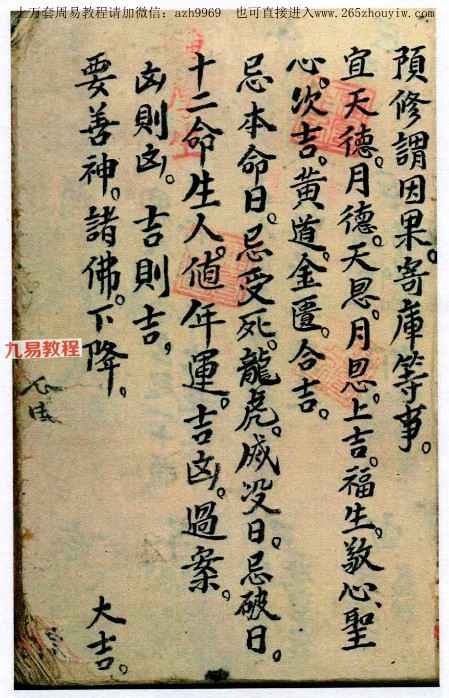 上万套周易教程请加微信：azh9969 也可直接进入www.265zhouyiw.com
預修謂因果。寄庫等事。
宜天德。月德。天恩。月恩。上吉。福生。敬心。聖
心。次吉。黃道。金匱。合吉。
忌本命日。忌受死。龍虎。滅没日。忌破日。
十二命生人。值年運。吉凶。過案。
凶則凶。吉則吉，
要善神。諸佛。下降。大吉。
九易教程